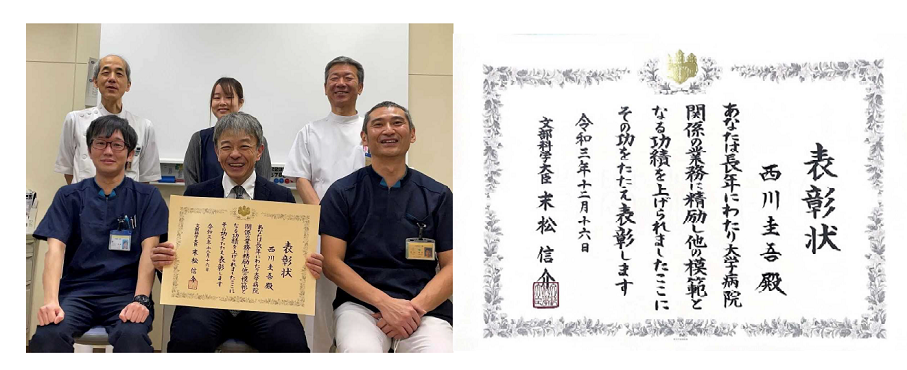 表彰状
西川圭吾殿
あなたは長年にわたり大学病院
関係の業務に精励し他の模範と
なる功績を上げられましたここに
その功をたたえ表彰します
令和三年十二月十六日
文部科学大臣 末松信介
表彰状
西川圭吾殿
あなたは長年にわたり大学病院
関係の業務に精励し他の模範と
なる功績を上げられましたここに
その功をたたえ表彰します
令和三年十二月十六日
文部科学大臣 末松信介